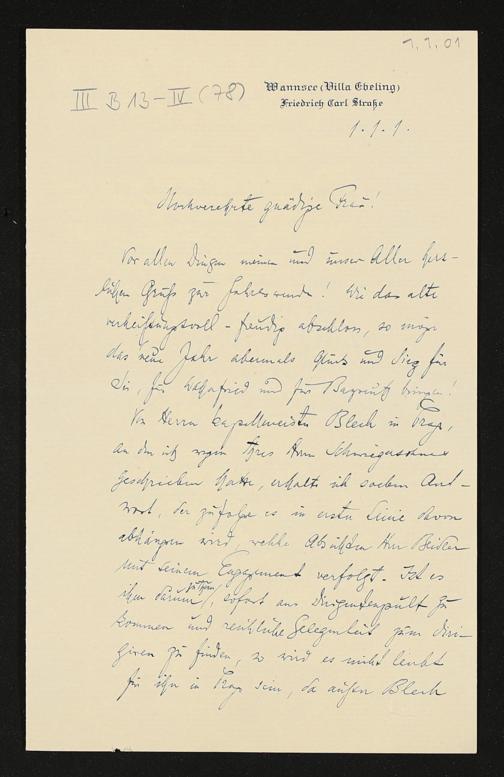 1.1.01
III B 13-IV (78)
Wannsee (Villa Ebeling)
Friedrich Carl Straße
1.1.1.
Hochverehrte gnädige Frau!
Vor allen Dingen meinen und unser Aller herz-
lichen Gruß zur Jahreswende! Wie das alte
verheißungsvoll-freudig abschloss, so möge
das neue Jahr abermals Glück und Sieg für
Sie, für Wahnfried und für Bayreuth bringen!
Von Herrn Capellmeister Blech in Prag,
an den ich wegen Ihres Herrn Schwiegersohnes
geschrieben hatte, erhalte ich soeben Ant-
wort, der zufolge es in erster Linie davon
abhängen wird, welche Absichten Herr Beidler
mit seinem Engagement verfolgt. Ist es
ihm darum zu thun, sofort ans Dirigentenpult zu
kommen und reichliche Gelegenheit zum Diri-
giren zu finden, so wird es nicht leicht
für ihn in Prag sein, da außer Blech